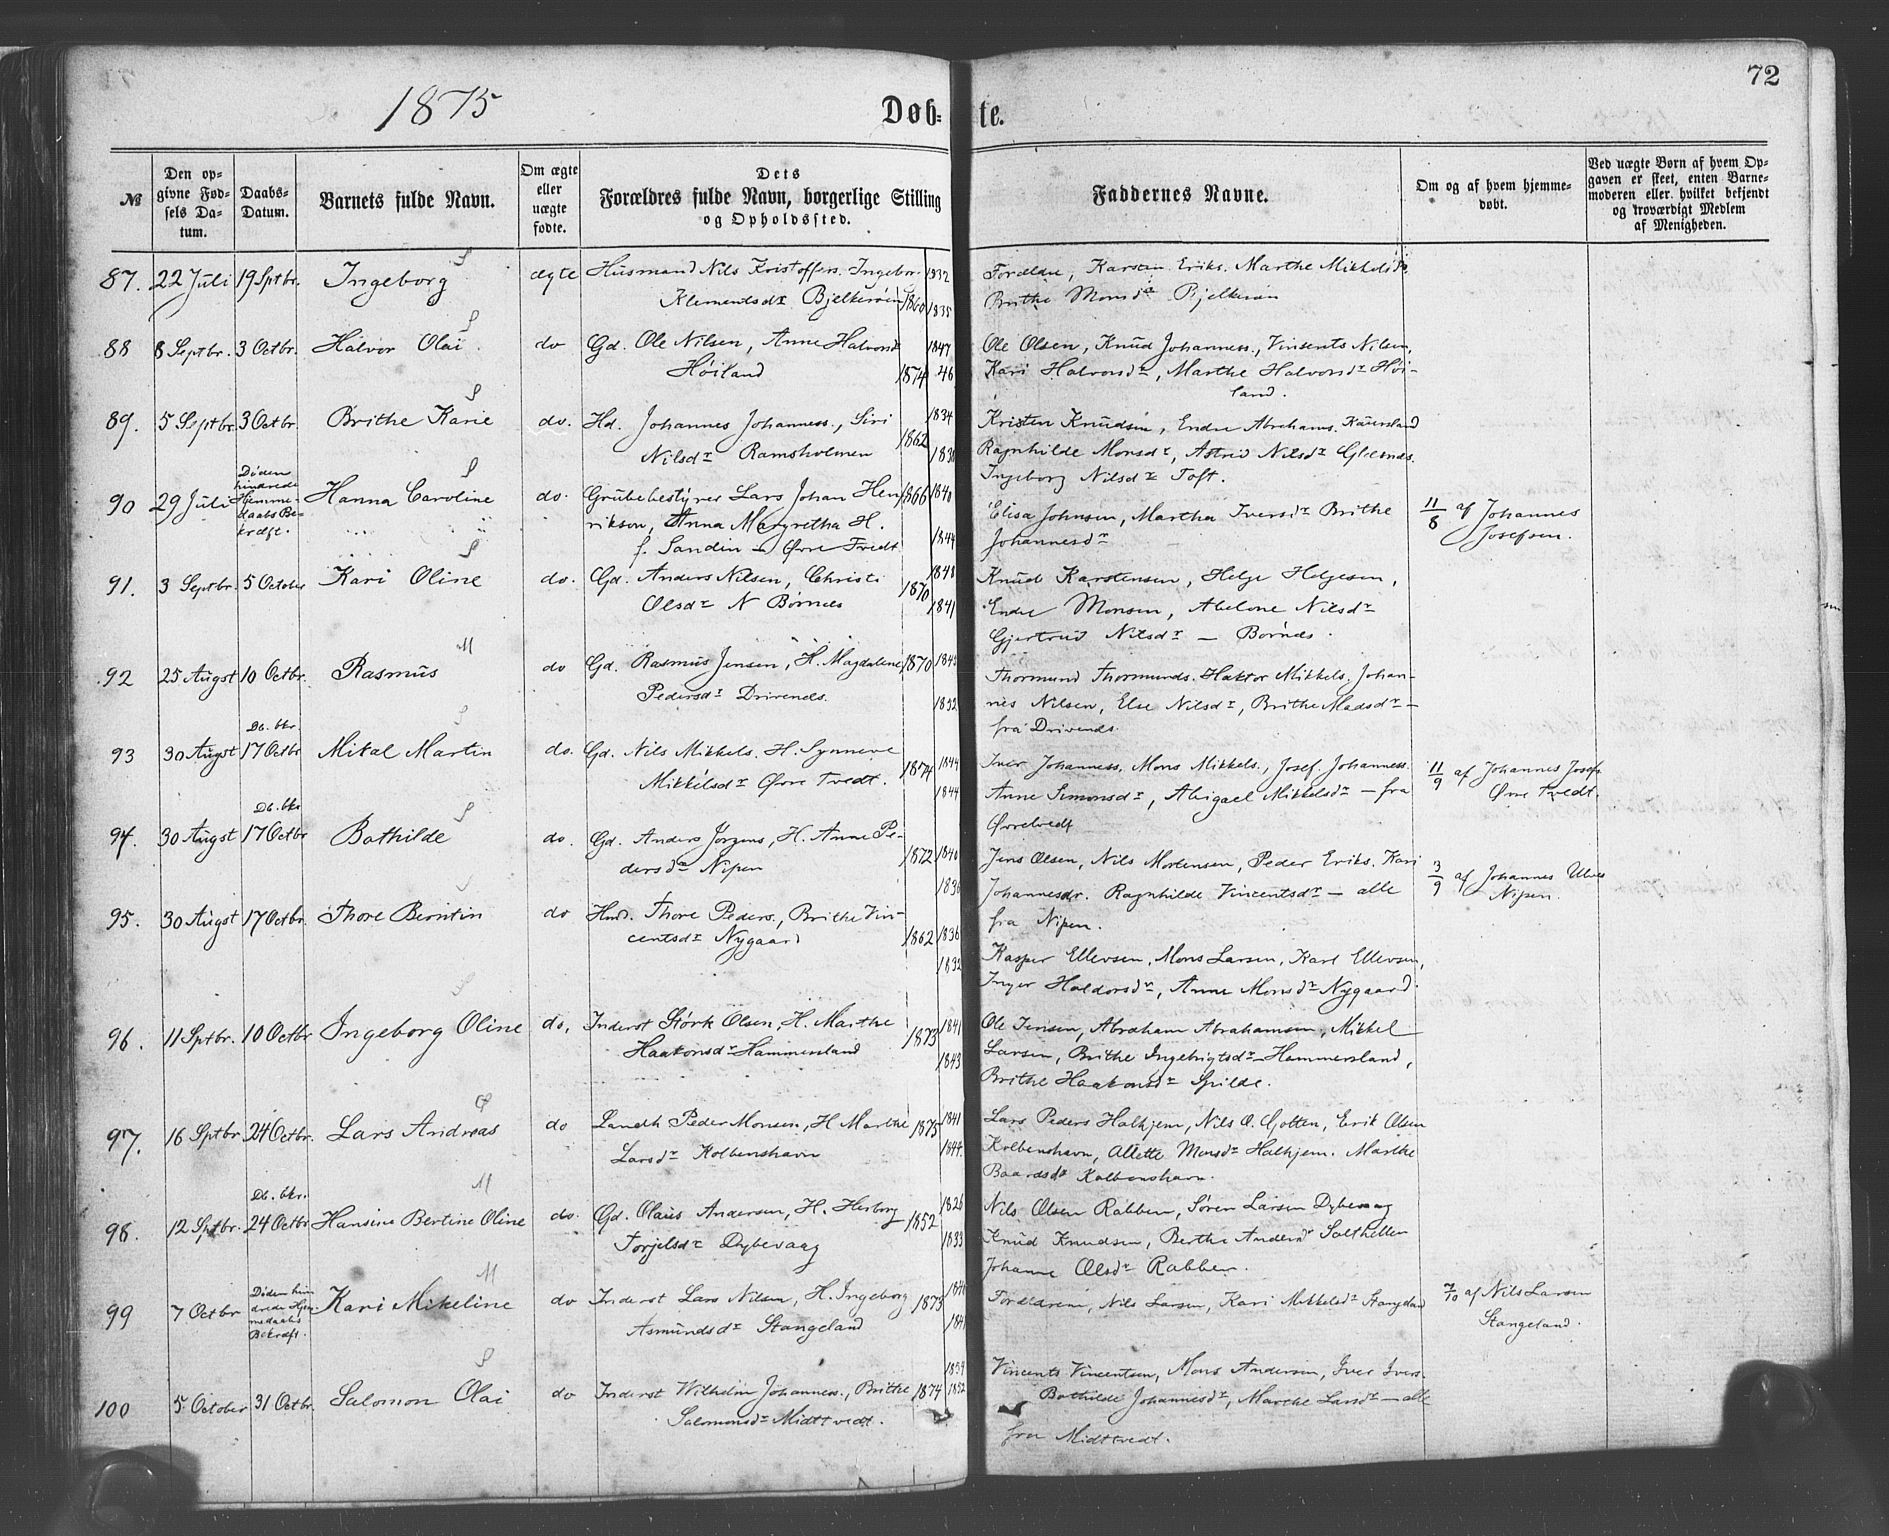 72
1875
Døb- te.
№
Den op-
givne Fød-
sels Da-
tum.
Daabs-
Datum.
Barnets fulde Navn.
Om ægte
eller
uægte
fødte.
Dets
Forældres fulde Navn, borgerlige Stilling
og Opholdssted.
Faddernes Navne.
Om og af hvem hjemme-
døbt.
Ved uægte Børn af hvem Op-
gaven er skeet, enten Barne-
moderen eller hvilket bekjendt
og troværdigt Medlem
af Menigheden.
87. 22 Juli 19 Sptbr. Ingeborg ægte Husmand Nils Kristoffers. Ingebor. 1832
Klementsdr Bjelkerøen 1860 1835
Forældre, Karsten Eriks. Marthe Mikkelsdr
Brithe Monsdr Bjelkerøen
88 8 Septbr. 3 Octbr. Halvor Olai do Gd. Ole Nilsen, Anne Halvorsdr 1847
Høiland 1874 -46
Ole Olsen, Knud Johanness., Vinsents Nilsen,
Kari Halvorsdr, Marthe Halvorsdr Høi-
land.
89. 5 Septbr. 3 Octbr. Brithe Karie do. Hd. Johannes Johanness., Siri 1834
Nilsdr Ramsholmen 1862 1836
Kristen Knudsen, Endre Abrahams.
Ragnhilde Monsdr, Astrid Nilsdr
Ingeborg Nilsdr Toft.
90 29 Juli Døden
hindrede
Hjemme-
daabs Be-
kræft.
Hanna Caroline do. Grubebestyrer Lars Johan Hen 1866 1840
rikson, Anna Margretha H.
f. Sandin - Øvre Tvedt 1844
Elisa Johnsen, Martha Iversdr Brithe
Johannesdr
11/8 af Johannes
Josefsen.
91. 3 Septbr. 5 October Kari Oline do. Gd. Anders Nilsen, Christi 1848
Olsdr N Børnes 1870 1841
Knud Karstensen, Helge Helgesen,
Endre Monsen, Abelone Nilsdr
Gjertrud Nilsdr - Børnes.
92 25 Augst 10 Octbr. Rasmus do Gd. Rasmus Jensen, H. Magdalene 1870 1843
Pedersdr Drivenes. 1832
Thormund Thormunds. Haktor Mikkels. Johan-
nes Nilsen, Else Nilsdr, Brithe Madsdr -
fra Drivends.
93 30 Augst Db. bkr.
17 Octbr Mikal Martin do. Gd. Nils Mikkels. H. Synneve
Mikkelsdr Øvre Tvedt. 1874 1844
1844
Iver Johanness. Mons Mikkels., Josef Johanness.
Anne Simonsdr, Abigael Mikkelsdr - fra
Øvretvedt
11/9 af Johannes Josefs.
Øvre Tvedt.
94. 30 Augst Db. bkr
17 Octbr Bothilde do. Gd. Anders Jørgens, H. Anne Pe-
dersdr Nipen 1872 1840
1836
Jens Olsen, Nils Mortensen, Peder Eriks. Kari
Johannesdr. Ragnhilde Vincentsdr - alle
fra Nipen.
3/9 af Johannes
Nipen.
95. 30 Augst 17 Octbr. Thore Berntin do Hmd. Thore Peders., Brithe Vin-
centsdr Nygaard 1862 1836
1832
Kasper Ellevsen, Mons Larsen, Karl Ellevsen,
Inger Haldorsdr, Anne Monsdr Nygaard.
96. 11 Sptbr. 10 Octbr Ingeborg Oline do. Inderst Størk Olsen, H. Marthe 1841
Haakonsdr Hammersland 1873 1843
Ole Jensen, Abraham Abrahamsen, Mikkel
Larsen, Brithe Ingebrigtsdr Hammersland,
Brithe Haakonsdr Spilde.
97. 16 Sptbr 24 Octbr. Lars Andreas do Landh. Peder Monsen, H Marthe 1875 1841
Larsdr Kolbenshavn 1844.
Lars Peders Halhjem, Nils O. Gjotten, Erik Olsen
Kolbenshavn, Allette Monsdr Halhjem. Marthe
Baardsdr Kolbenshavn.
98. 12 Sptbr. Db. bkr.
24 Octbr Hansine Bertine Oline do. Gd. Olaus Andersen, H. Herborg 1852 1826
Torjelsdr Dybevaag 1833
Nils Olsen Rabben, Søren Larsen Dybevaag
Knud Knudsen, Berthe Andersdr Salthellen
Johanne Olsdr Rabben.
99 7 Octbr Døden hin
drede Hjem
medaabs
Bekræft.
Kari Mikeline do Inderst Lars Nilsen, H. Ingeborg 1873
Asmundsdr Stangeland
Forældrene, Nils Larsen, Kari Mikkelsdr Stangeland
7/10 af Nils Larsen
Stangeland.
100 5 October 31 Octbr. Salomon Olai do Inderst Wilhelm Johanness., Brithe 1874 1852
Salomonsdr Midttvedt.
Vincents Vincentsen, Mons Andersen, Iver Ivers.
Bothilde Johannesdr, Marthe Larsdr - alle
fra Midttvedt.